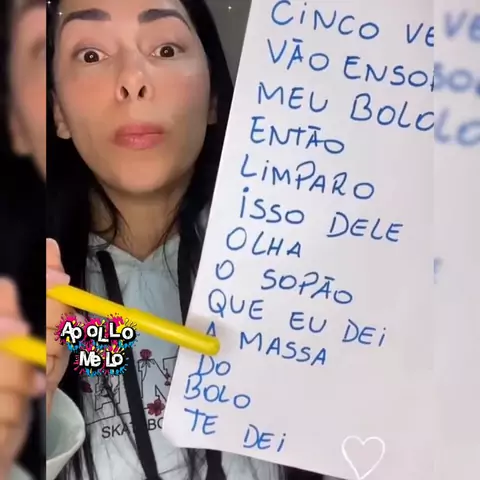 CINCO VE
VÃO ENSO
MEU BOLO
ENTÃO
LIMPARO
ISSO DELE
OLHA
O SOPÃO
QUE EU DEI
A MASSA
DO
BOLO
TE DEI
APOLLLO
MELO
SKA BO